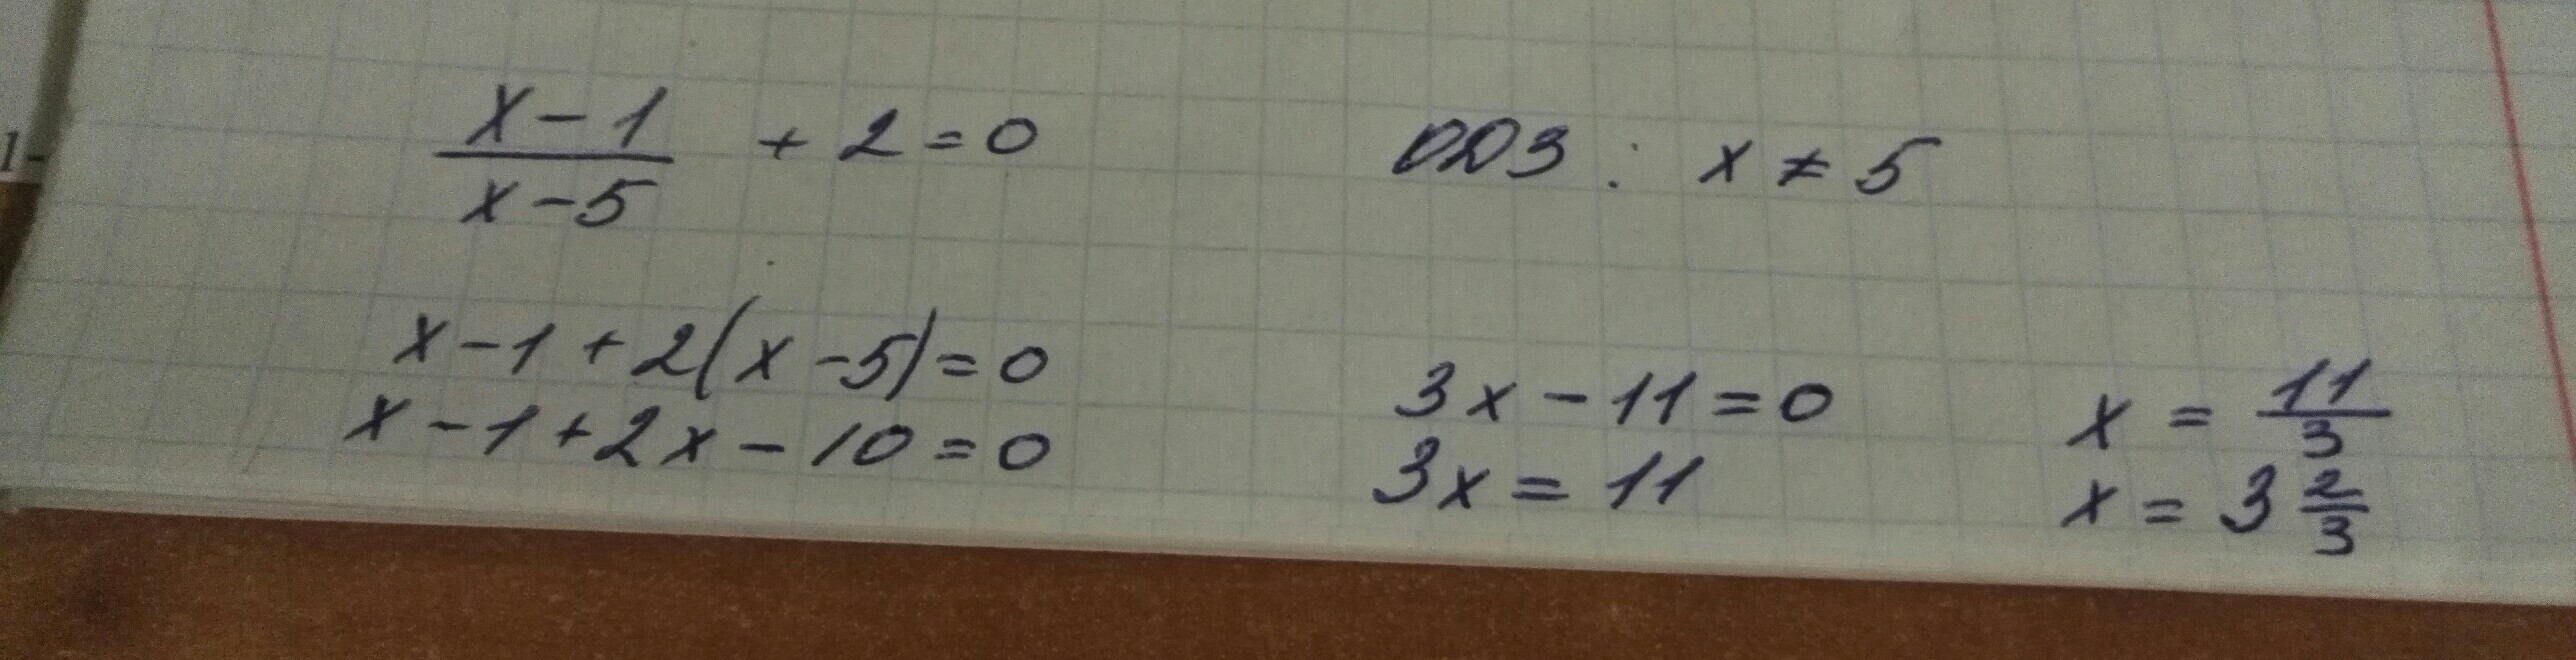 x-1 / x-5 + 2 = 0
ОДЗ : x ≠ 5
x - 1 + 2(x - 5) = 0
x - 1 + 2x - 10 = 0
3x - 11 = 0
3x = 11
x = 11/3
x = 3 2/3
1-